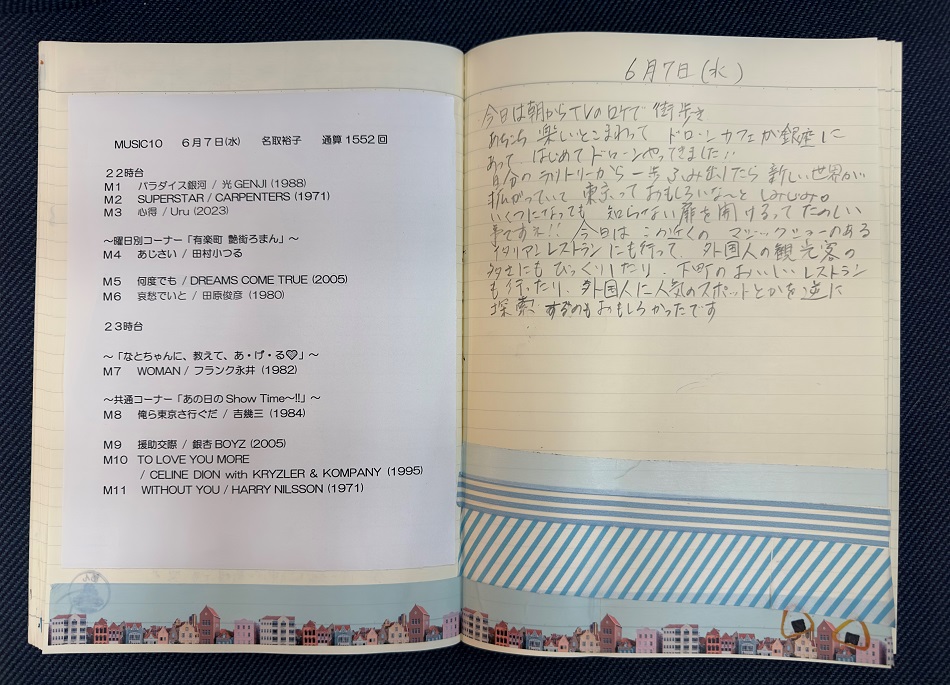 MUSIC10　6月7日(水)　名取裕子　通算1552回
22時台
M1　パラダイス銀河 / 光GENJI (1988)
M2　SUPERSTAR / CARPENTERS (1971)
M3　心得 / Uru (2023)
～曜日別コーナー「有楽町 艶街ろまん」～
M4　あじさい / 田村小つる
M5　何度でも / DREAMS COME TRUE (2005)
M6　哀愁でいと / 田原俊彦 (1980)
23時台
～「なとちゃんに、教えて、あ・げ・る♡」～
M7　WOMAN / フランク永井 (1982)
～共通コーナー「あの日のShow Time～!!」～
M8　俺ら東京さ行ぐだ / 吉幾三 (1984)
M9　援助交際 / 銀杏BOYZ (2005)
M10　TO LOVE YOU MORE
/ CELINE DION with KRYZLER & KOMPANY (1995)
M11　WITHOUT YOU / HARRY NILSSON (1971)
6月7日(水)
今日は朝からTVのロケで 街歩き
あちこち 楽しいとこまわって ドローンカフェが銀座に
あって はじめてドローンやってきました!!
自分のテリトリーから一歩ふみ出したら 新しい世界が
拡がっていて 東京っておもしろいな～と しみじみ。
いくつになっても 知らない扉を開けるって たのしい
事ですネ!! 今日は この近くの マジックショーのある
イタリアンレストランにも行って、外国人の観光客の
多さにも びっくりしたり、下町の おいしい レストラン
も行ったり、外国人に人気のスポットとかを逆に
探索 するのもおもしろかったです